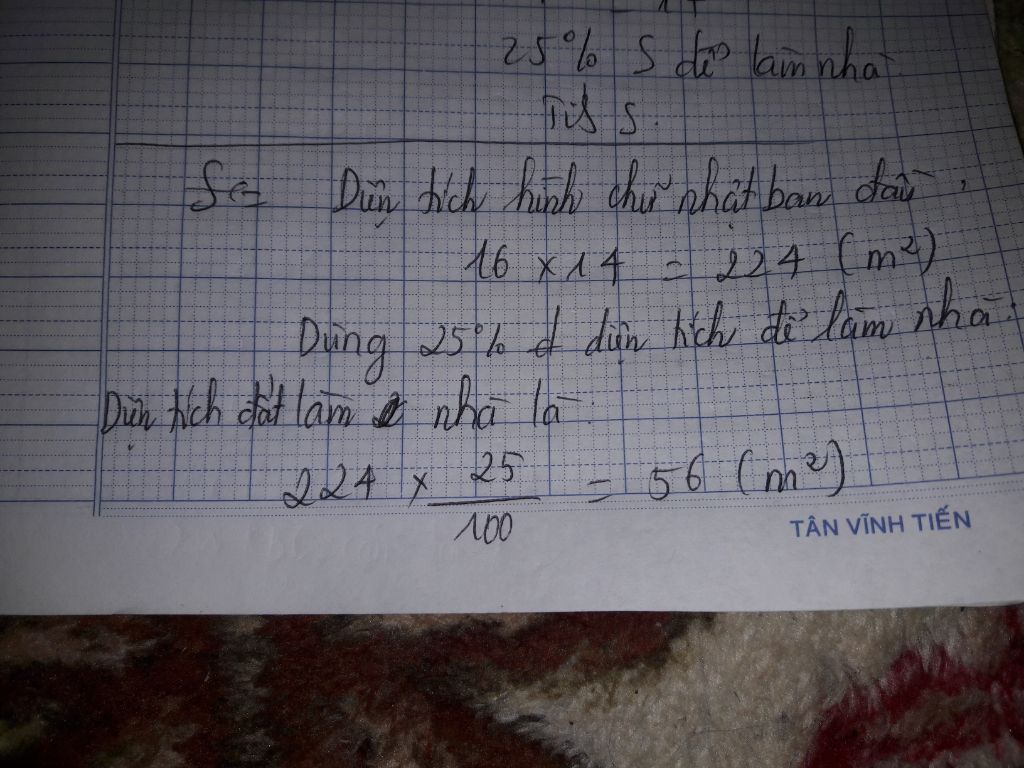 25% S để làm nhà.
Tính S.
S = Diện tích hình chữ nhật ban đầu,
16 × 14 = 224 (m²)
Dùng 25% d diện tích để làm nhà.
Diện tích đất làm nhà là:
224 × 25/100 = 56 (m²)
TÂN VĨNH TIẾN